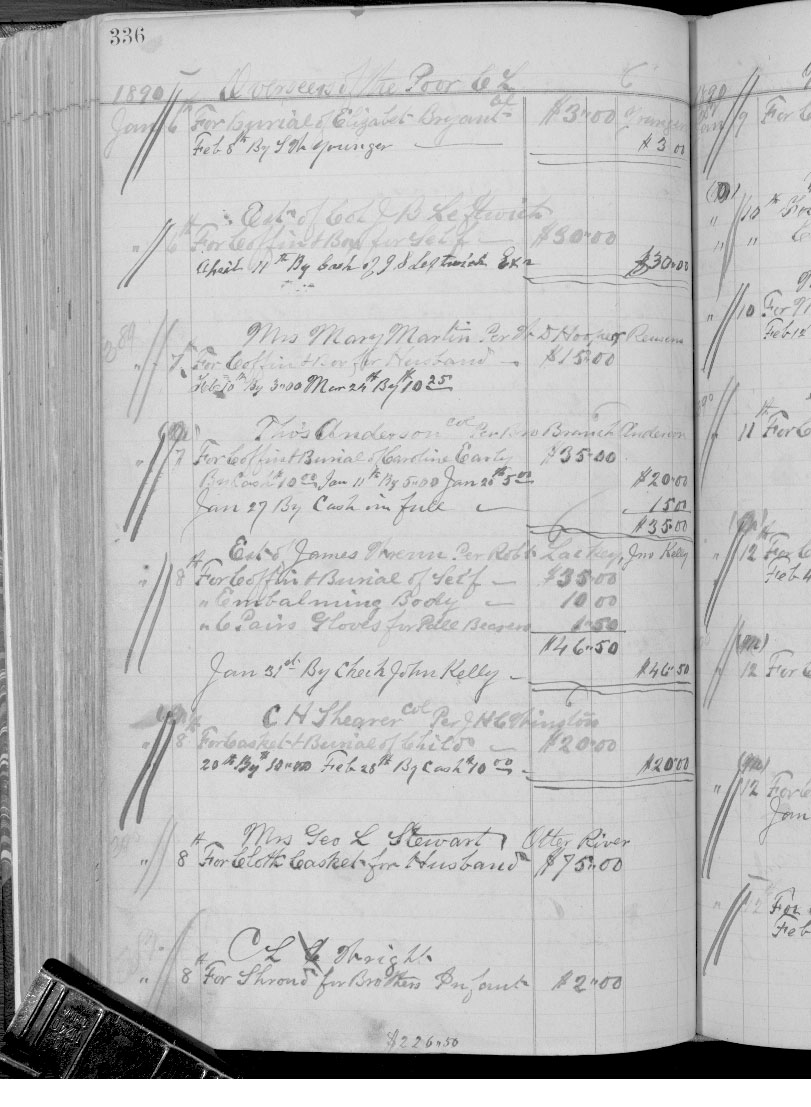 336
1890 Overseers of the Poor C L
Jan 6th For burial of Elizabet Bryant Col $3.00 Younger
Feb 8th By S W Younger $3.00
Est of Col J B Leftwich
" 6th For Coffin & Box for Self $30.00
April 11th By Cash of J S Leftwich Exr $30.00
Mrs Mary Martin Per W D Hooper
" 7 For Coffin & Box for Husband $15.00
Feb 10th By 5.00 Mar 24th By $10 25
Thos Anderson col Per Branch Anderson
" 7 For Coffin & Burial of Caroline Early $35.00
By Cash $10 00 Jan 11th By 5.00 Jan 20th 5 00 $20.00
Jan 27 By Cash in full 15.00
$35.00
Est of James Per Robt Lackey, Jno Kelly
" 8th For Coffin & Burial of Self $35.00
" Embalming Body 10 00
" 6 Pairs Gloves for Pall Bearers 1.50
$46.50
Jan 31st By Check John Kelly $46.50
C H Shearer Col Per J H C
" 8 For Casket & Burial of Child $20.00
20th By $10.00 Feb 28th By Cash $10 00 $20.00
Mrs Geo L Stewart Otter River
" 8th For Cloth Casket for Husband $75.00
C L Wright
" 8th For Shroud for Brothers Infant $2.00
$226.50
1890
Jan 9 For
" 10th
" "
" 10 For
Feb 12
11th For
" 12th For
Feb 4
" 12 For
" 12 For
Jan
" 12 For
Feb